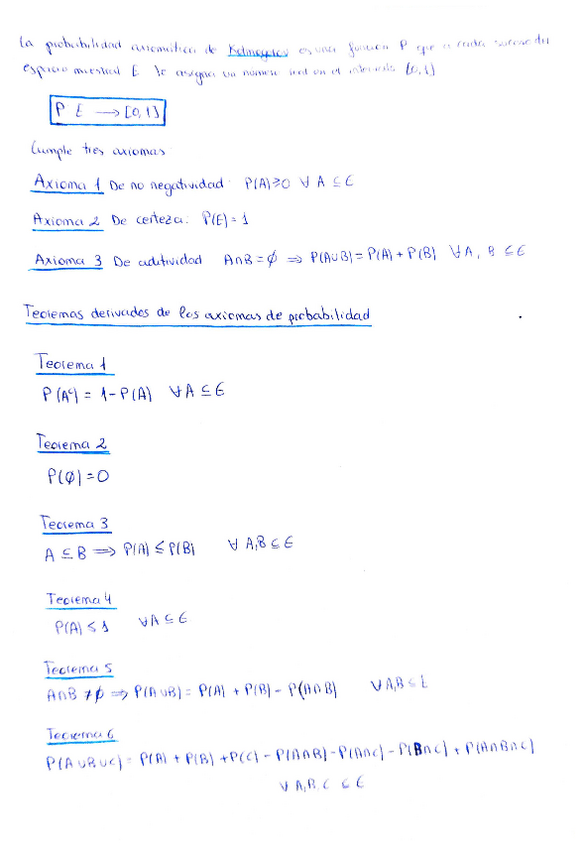 La probabilidad axiomática de Kolmogorov es una función P que a cada suceso del
espacio muestral E le asigna un número real en el intervalo [0,1]
P E → [0,1]
Cumple tres axiomas
Axioma 1 De no negatividad P(A)≥0 ∀ A ⊆ E
Axioma 2 De certeza. P(E)=1
Axioma 3 De aditividad A∩B=∅ ⇒ P(A∪B)=P(A)+P(B) ∀A, B ⊆ E
Teoremas derivados de los axiomas de probabilidad
Teorema 1
P(Aᶜ) = 1-P(A) ∀A ⊆ E
Teorema 2
P(∅)=0
Teorema 3
A ⊆ B ⇒ P(A) ≤ P(B) ∀ A,B ⊆ E
Teorema 4
P(A) ≤ 1 ∀A ⊆ E
Teorema 5
A∩B ≠ ∅ ⇒ P(A∪B) = P(A) + P(B) - P(A∩B) ∀A,B ⊆ E
Teorema 6
P(A∪B∪C) = P(A) + P(B) + P(C) - P(A∩B) - P(A∩C) - P(B∩C) + P(A∩B∩C)
∀ A,B,C ⊆ E